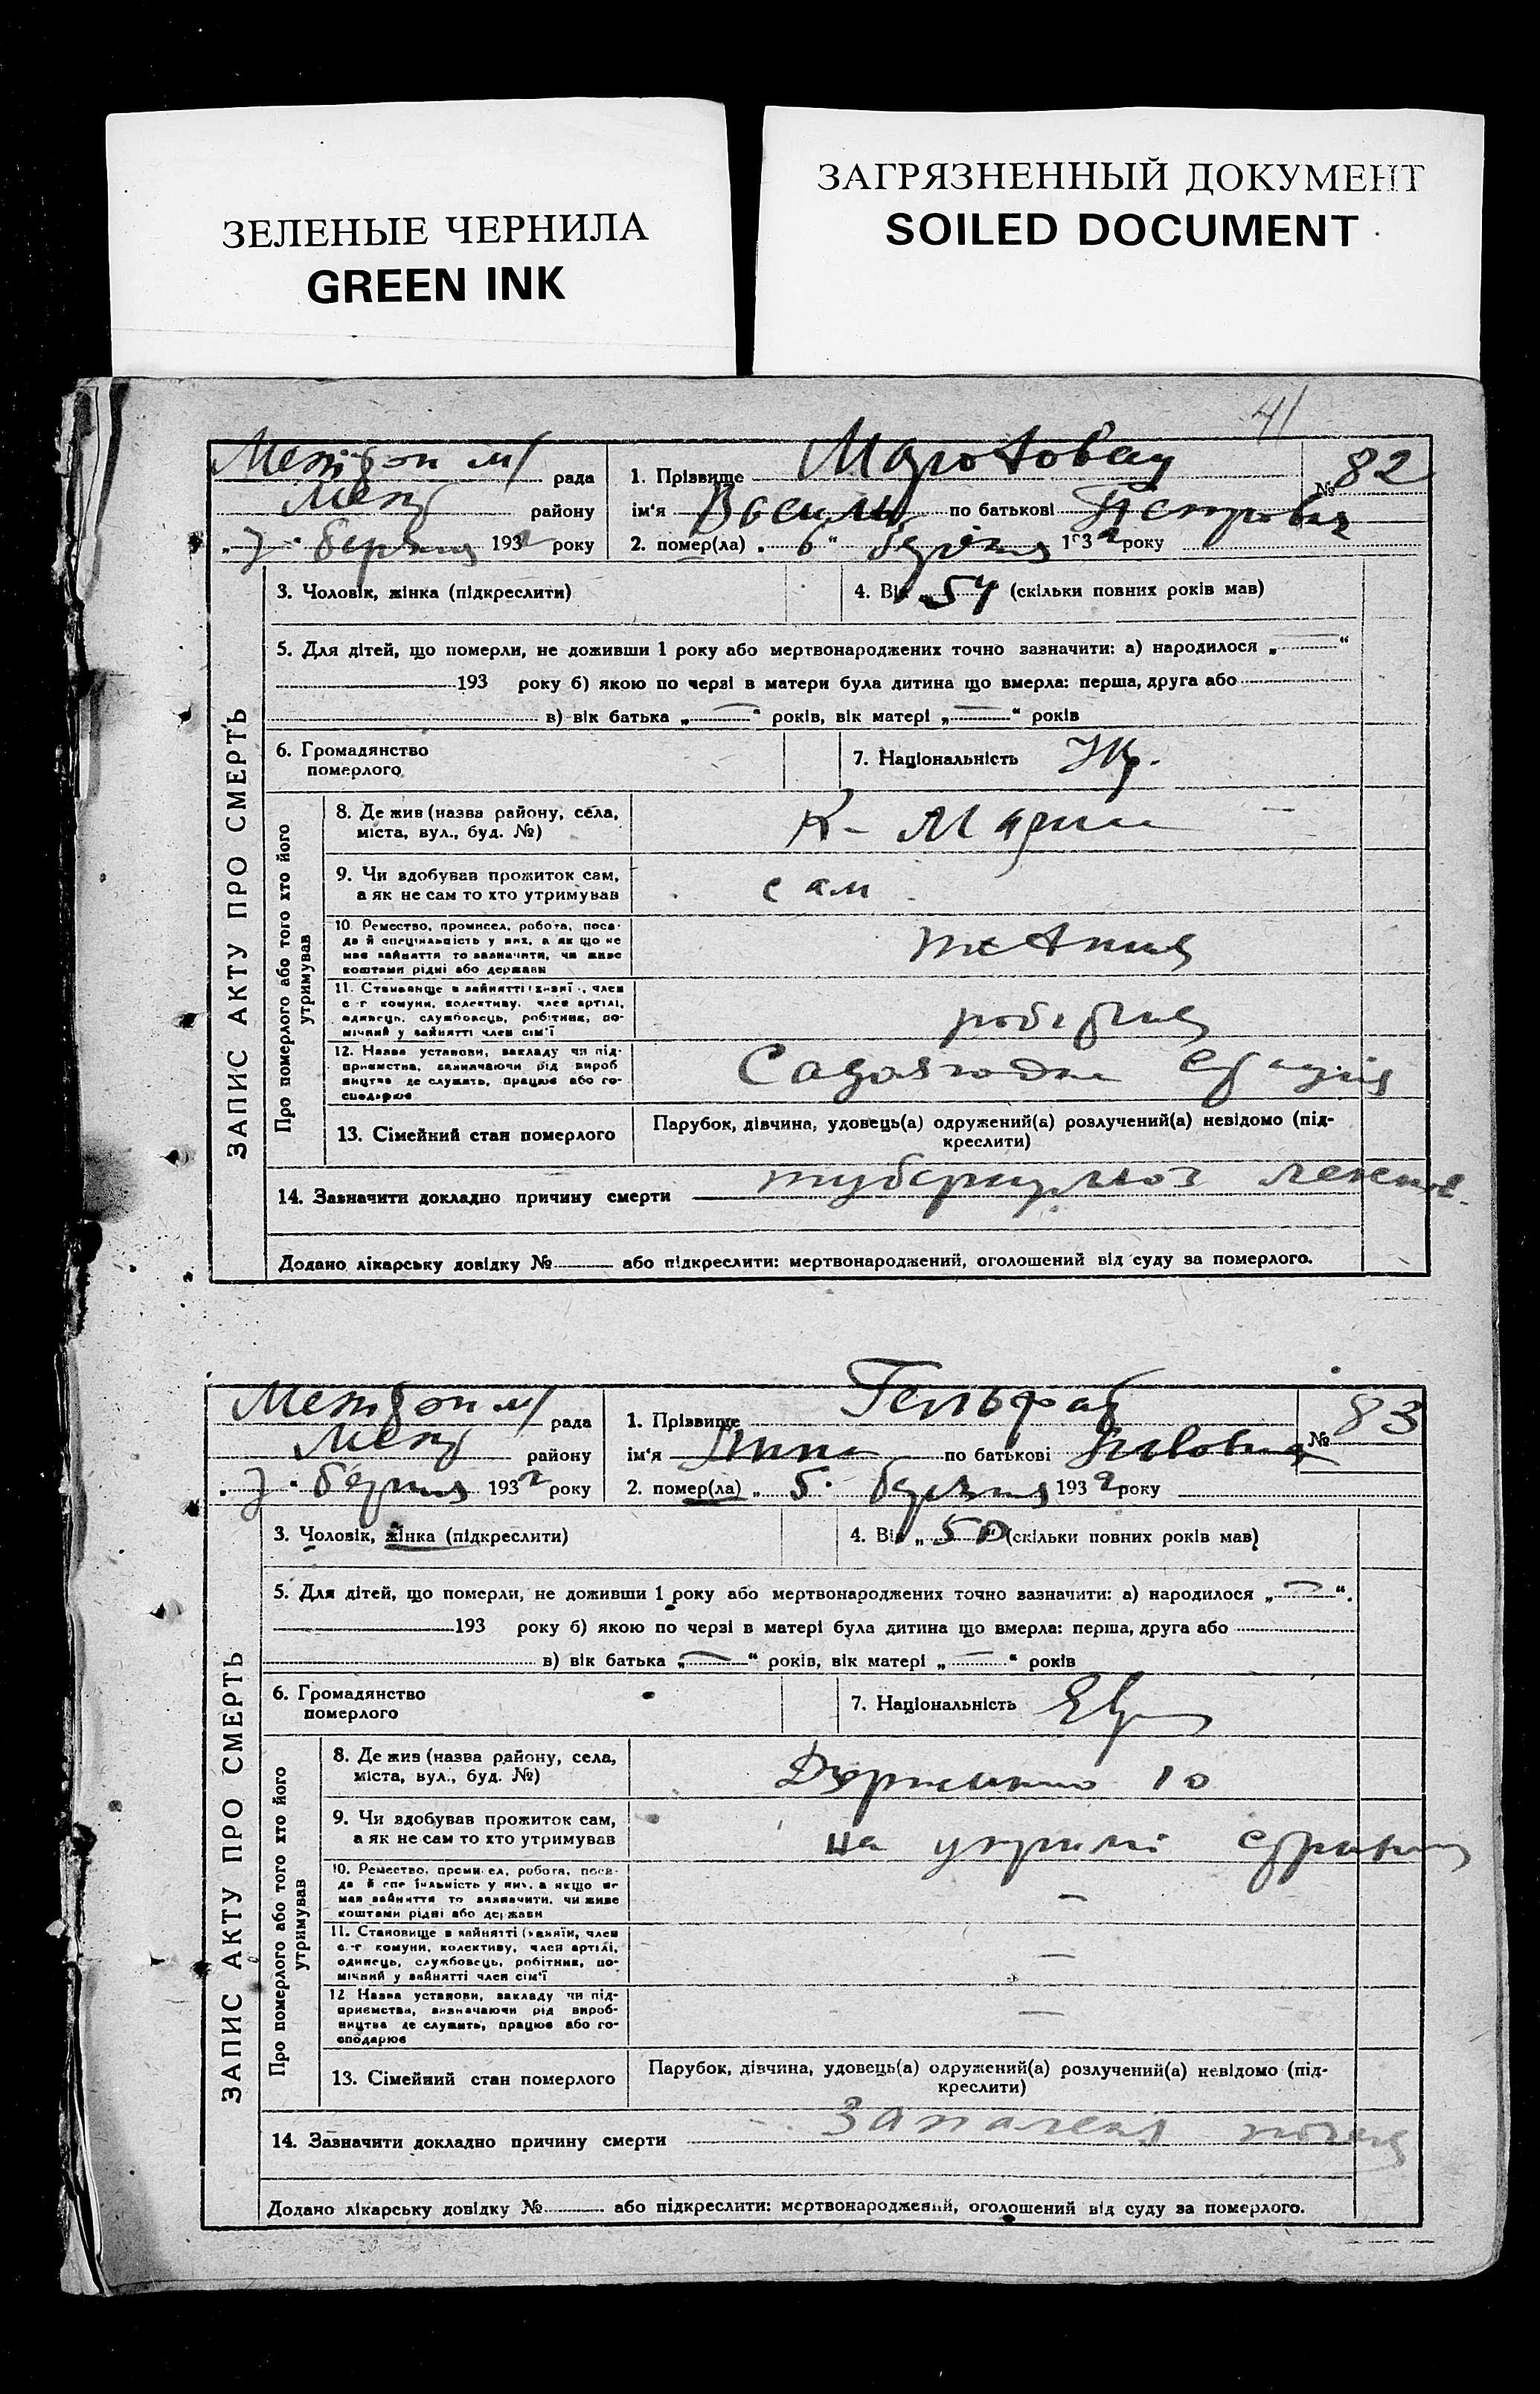 ЗЕЛЕНЫЕ ЧЕРНИЛА
GREEN INK
ЗАГРЯЗНЕННЫЙ ДОКУМЕНТ
SOILED DOCUMENT
41
ЗАПИС АКТУ ПРО СМЕРТЬ
рада
району
7 березня 1932 року
1. Прізвище
№ 82
ім'я Василь по батькові Петрович
2. помер(ла) „ 6 " березня 1932 року
3. Чоловік, жінка (підкреслити)
4. Вік „ 54 (скільки повних років мав)
5. Для дітей, що померли, не доживши 1 року або мертвонароджених точно зазначити: а) народилося „ — "
193 року б) якою по черзі в матери була дитина що вмерла: перша, друга або
в) вік батька „ — " років, вік матері „ — " років
6. Громадянство
померлого
7. Національність Укр.
Про померлого або того хто його
утримував
8. Де жив (назва району, села,
міста, вул., буд. №)
9. Чи здобував прожиток сам,
а як не сам то хто утримував
сам
10. Ремество, промисел, робота, поса-
да й спеціяльність у них, а як що не
мав зайняття то зазначити, чи живе
коштами рідні або держави
11. Становище в зайнятті (хазяїн, член
с.-г комуни, колективу, член артілі,
одинець, службовець, робітник, по-
мічний у зайнятті член сім'ї
12. Назва установи, закладу чи під-
приємства, зазначаючи рід вироб
ництва де служить, працює або го-
сподарює
13. Сімейний стан померлого
Парубок, дівчина, удовець(а) одружений(а) розлучений(а) невідомо (під-
креслити)
14. Зазначити докладно причину смерти туберкульоз легенів.
Додано лікарську довідку № або підкреслити: мертвонароджений, оголошений від суду за померлого.
ЗАПИС АКТУ ПРО СМЕРТЬ
рада
району
7 березня 1932 року
1. Прізвище
№ 83
ім'я по батькові
2. помер(ла) „ 5 березня 1932 року
3. Чоловік, жінка (підкреслити)
4. Вік „ 50 (скільки повних років мав)
5. Для дітей, що померли, не доживши 1 року або мертвонароджених точно зазначити: а) народилося „ — ".
193 року б) якою по черзі в матері була дитина що вмерла: перша, друга або
в) вік батька „ — " років, вік матері „ — " років
6. Громадянство
померлого
7. Національність
Про померлого або того хто його
утримував
8. Де жив (назва району, села,
міста, вул., буд. №)
10
9. Чи здобував прожиток сам,
а як не сам то хто утримував
на
10. Ремество, промисел, робота, поса-
да й спеціяльність у них, а якщо не
мав зайняття то зазначити, чи живе
коштами рідні або держави
—
11. Становище в зайнятті (хазяїн, член
с.-г комуни, колективу, член артілі,
одинець, службовець, робітник, по-
мічний у зайнятті член сім'ї
—
12 Назва установи, закладу чи під-
приємства, визначаючи рід вироб-
ництва де служить, працює або го-
сподарює
—
13. Сімейний стан померлого
Парубок, дівчина, удовець(а) одружений(а) розлучений(а) невідомо (під-
креслити)
14. Зазначити докладно причину смерти
Додано лікарську довідку № або підкреслити: мертвонароджений, оголошений від суду за померлого.